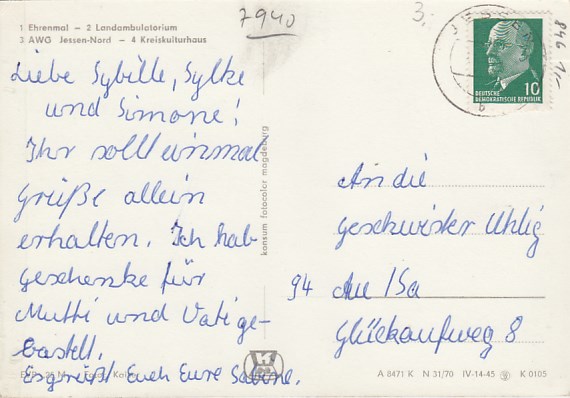 7940
3.
1 Ehrenmal – 2 Landambulatorium
3 AWG Jessen-Nord – 4 Kreiskulturhaus
Liebe Sybille, Sylke
und Simone!
Ihr sollt einmal
Grüße allein
erhalten. Ich hab
Geschenke für
Mutti und Vati ge-
bastelt.
Es grüßt Euch Eure Sabine.
konsum fotocolor magdeburg
10
DEUTSCHE
DEMOKRATISCHE REPUBLIK
846 1,-
An die
Geschwister Uhlig
94 Aue / Sa
Glückaufweg 8
A 8471 K N 31/70 IV-14-45 K 0105